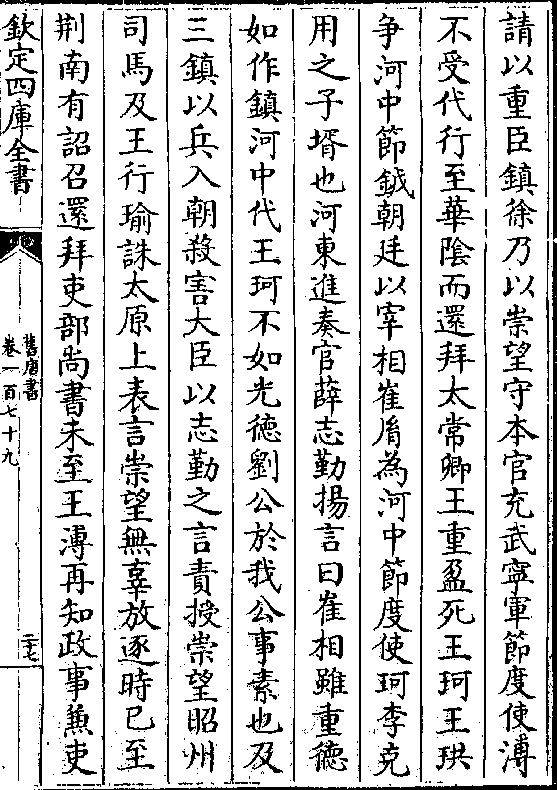 請以重臣鎮徐乃以崇望守本官充武寧軍節度使溥
不受代行至華陰而還拜太常卿王重盈死王珂王珙
争河中節鉞朝廷以宰相崔𦙍為河中節度使珂李克
用之子壻也河東進奏官薛志勤揚言曰崔相雖重德
如作鎮河中代王珂不如光德劉公於我公事素也及
三鎮以兵入朝殺害大臣以志勤之言責授崇望昭州
司馬及王行瑜誅太原上表言崇望無辜放逐時已至
荆南有詔召還拜吏部尚書未至王溥再知政事兼吏
欽定四庫全書
舊唐書
卷一百七十九
二七